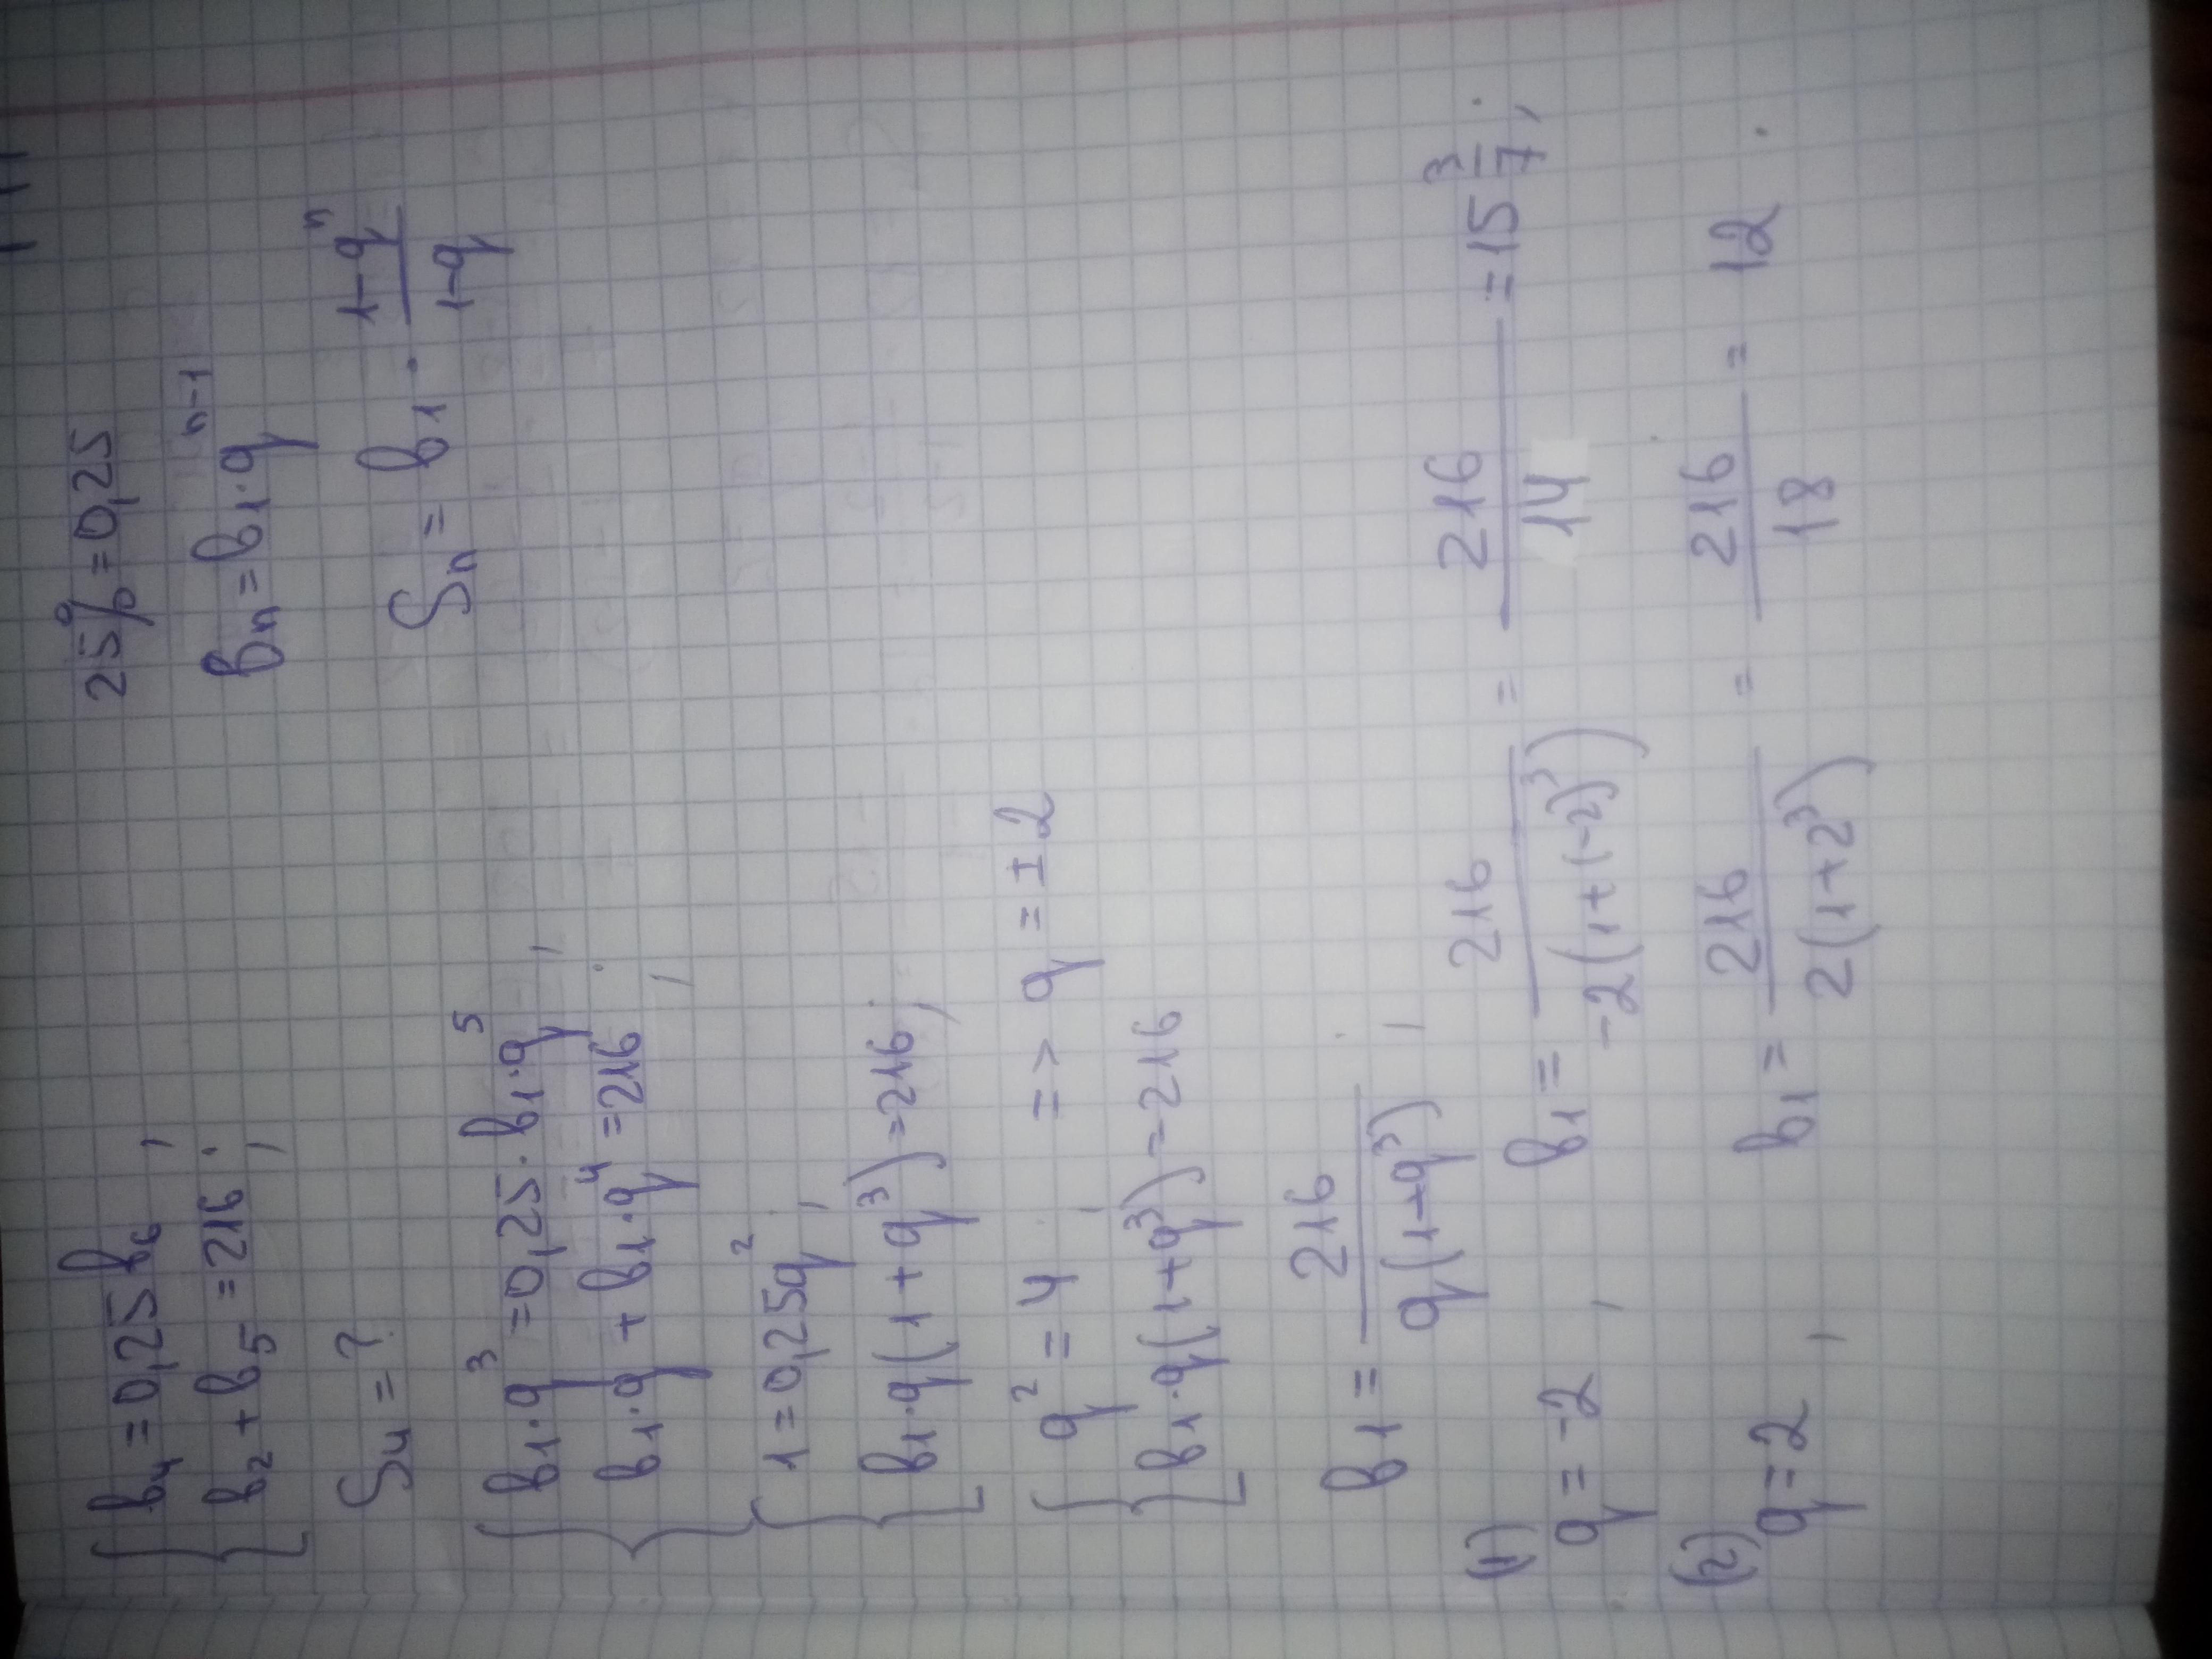 { b₄ = 0,25 b₆ ; 25% = 0,25
b₂ + b₅ = 216 ; bₙ = b₁·qⁿ⁻¹
S₄ = ? Sₙ = b₁ · (1-qⁿ)/(1-q)
{ b₁·q³ = 0,25·b₁·q⁵ ;
b₁·q + b₁·q⁴ = 216 ;
{ 1 = 0,25q² ;
b₁·q(1+q³) = 216 ;
{ q² = 4 ; => q = ±2
b₁·q(1+q³) = 216
b₁ = 216/(q(1+q³)) ;
(1) q = -2 , b₁ = 216/(-2(1+(-2)³)) = 216/14 = 15 3/7 ;
(2) q = 2 , b₁ = 216/(2(1+2³)) = 216/18 = 12 .